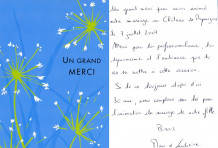 UN GRAND
MERCI
Un grand merci pour avoir animé
notre mariage au Château de
le 7 juillet
Merci pour le professionnalisme, le
dynamisme et l'ambiance que tu
as su mettre à cette soirée.
Si tu es toujours dispo d'ici
30 ans, nous comptons sur toi pour
l'animation du mariage de notre fille
Bises